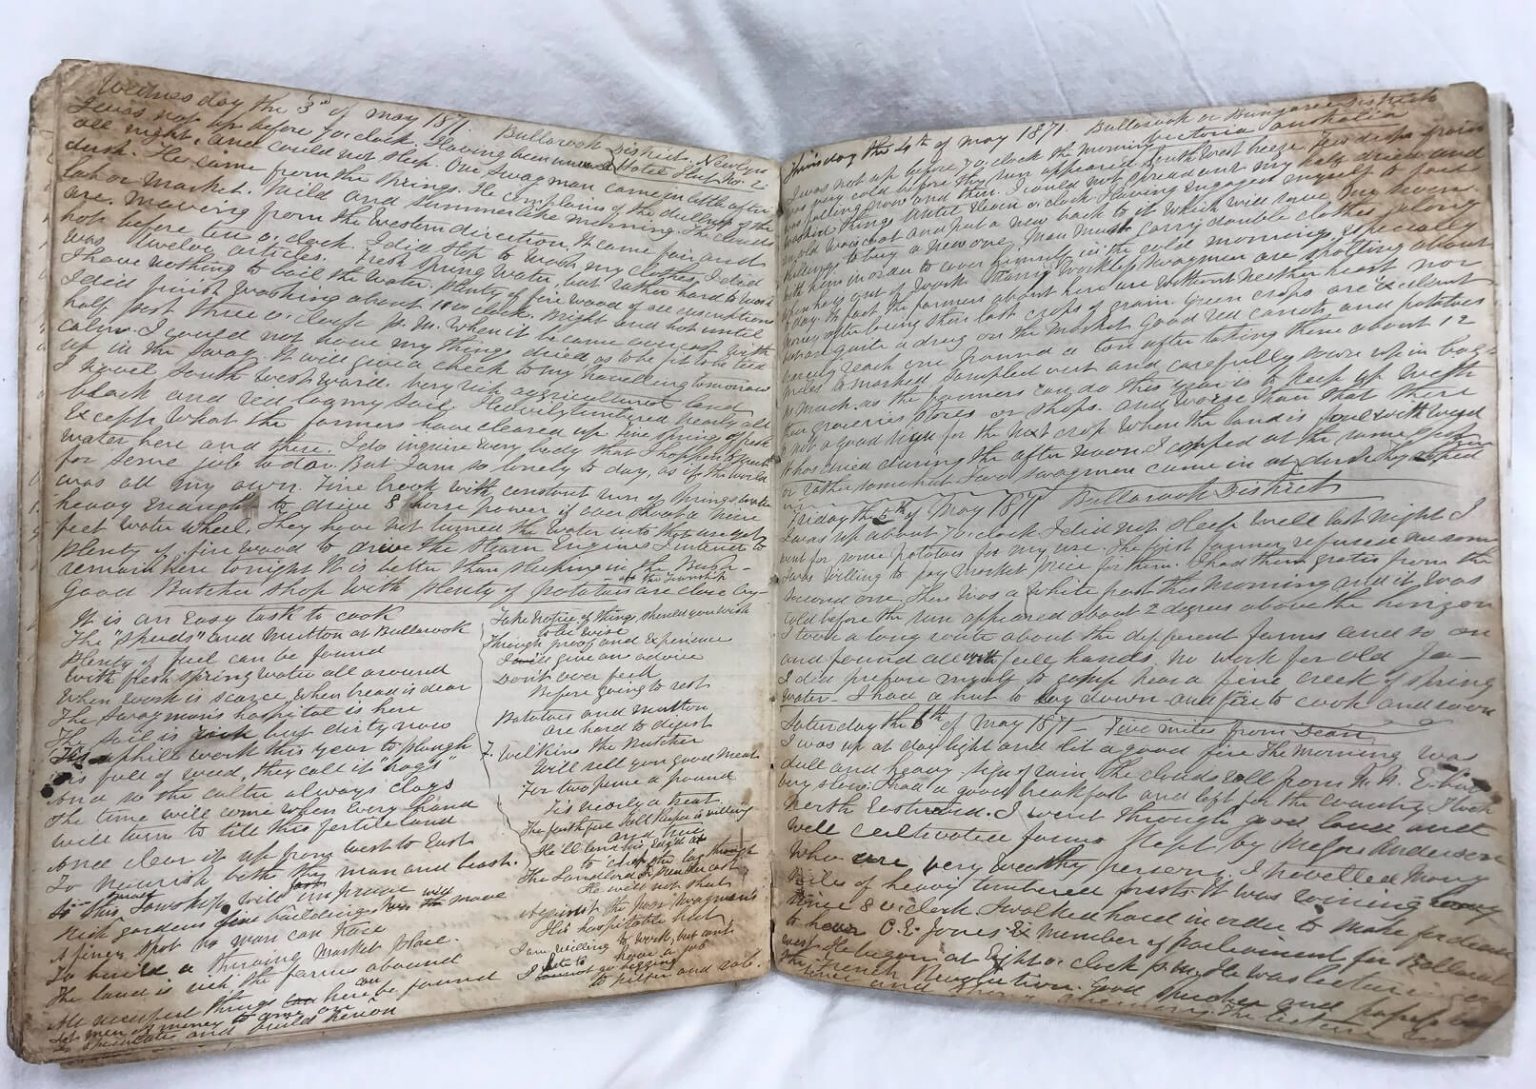 Wednesday the 3rd of May 1871. Bullarook District, Newlyn
I was not up before 7 o'clock, Having been unwell Hotel Hut No. 2
all night, and could not sleep. One Swagman came in little after
dusk. He came from the Springs. He complains of the dullness of the
labor market. Mild and summerlike morning. The clouds
are moving from the Western direction. It came fair and
hot before ten o'clock. I did stop to wash my clothes. I did
wash twelve articles. Fresh Spring Water, but rather hard to wash
I have nothing to boil the Water. Plenty of fire wood of all descriptions
I did finish washing about 10 o'clock. Bright and hot until
half past three o'clock p.m. When it became overcast with
calm. I could not have my things dried as to be fit to be tied
up in the Swag. It will give a check to my travelling tomorrow
I travel South Westward. Very rich agricultural land
black and red loamy soil. Heavily timbered nearly all
Except What the farmers have cleared up. Fine spring of fresh
water here and there. I do inquire every body that I happen to meet
for some job to do. But I am so lonely to day, as if the world
was all my own. Fine brook with constant run of Springs water
heavy enough to drive 8 horse power if over shoot a nine
feet water wheel. They have not turned the water into that use yet
plenty of fire wood to drive the Steam Engines. I intend to
remain here tonight. It is better than sleeping in the Bush—
Good Butcher Shop With plenty of Potatoes are close by—
at the Township
It is an Easy task to cook
The "Spuds" and Mutton at Bullarook
Plenty of fuel can be found
With flesh spring water all around
When work is scarce, when bread is dear
The Swagman's hospital is here
The soil is rich but dirty now
Tis uphill work this year to plough
Tis full of weed, they call it "hogs"
And so the culter always clogs
The time will come when every hand
Will turn to till this fertile land
And clear it up from west to East
To nourish both the man and beast.
So this Township will improve
Rich gardens fine buildings the move
A finer spot no man can trace
To build a thriving market place.
The land is rich, the farms abound
All decent things can here be found
Let men of money to
and build thereon
Take notice of things, should you wish
to be wise
Through proof and Experience
I will give one advice
Don't over feed
Before going to rest
Potatoes and mutton
are hard to digest
J. Wilkins the Butcher
Will sell you good meat
For two pence a pound
Tis nearly a treat.
The faithful Toll Keeper is willing
and true
He'll lend his
to cut the log through
The Landlord
He will not shut
Against the poor Swagman's
His hospitable Hut
I am willing to work, but cant
hear a job
I hate to go begging
to pilfer and rob.
Thursday the 4th of May 1871. Bullarook or Bungaree Districts
Victoria Australia
I was not up before 7 o'clock the morning
was very cold before the sun appeared South West breeze. Few drops of rain
was falling now and then. I could not spread out my half dried and
washed things Until Eleven o'clock Having engaged myself to fold
an old waistcoat and put a new back to it which will save me seven
shillings to buy a new one. Man must carry double clothes along
with him in order to cover himself in the cold mornings Especially
when they out of work. Many Workless Swagmen are spotting about
to day. In fact the farmers about here are without neither heart nor
money after losing their last crops of grain. Green crops are excellent
but quite a drug on the Market. Good red carrots, and potatoes
barely reach one pound a ton after taking them about 12
miles to market, sampled out and carefully sown up in bags
As much as the farmers can do this year is to keep up with
their groceries stores or shops. and worse than that there
is not a good sign for the next crop when the land is foul with weed
It has cried during the after noon. I camped at the same hut
or rather somewhat. Two Swagmen came in at dusk and camped
Friday the 5th of May 1871 Bullarook District
I was up about 7 o'clock. I did not sleep well last night. I
went for some potatoes for my use. The first farmer refused me some
I was willing to pay market price for them. I had them gratis from the
second one. There was a white frost this morning and it was
cold before the sun appeared about 2 degrees above the horizon
I took a long route about the different farms and so on
and found all with full hands, no work for old Jo—
I did prepare myself to camp near a fine creek of spring
water. I had a hut to lay down and fire to cook and so on
Saturday the 6th of May 1871— Five miles from Dean
I was up at day light and lit a good fire. The morning was
dull and heavy sign of rain. The clouds roll from N. N. E. but
very slow. I had a good breakfast and left for the country. I took
North Eastward. I went through good land and
well cultivated farms kept by Anderson
Who are very wealthy persons. I travelled many
miles of heavy timbered forests. It was raining heavy
since 8 o'clock. I walked hard in order to make for Dean
to hear C. E. Jones Ex Member of Parliament for Ballarat
west. He began at Eight o'clock p.m. He was lecturing on
the French Revolution. Good speaker and